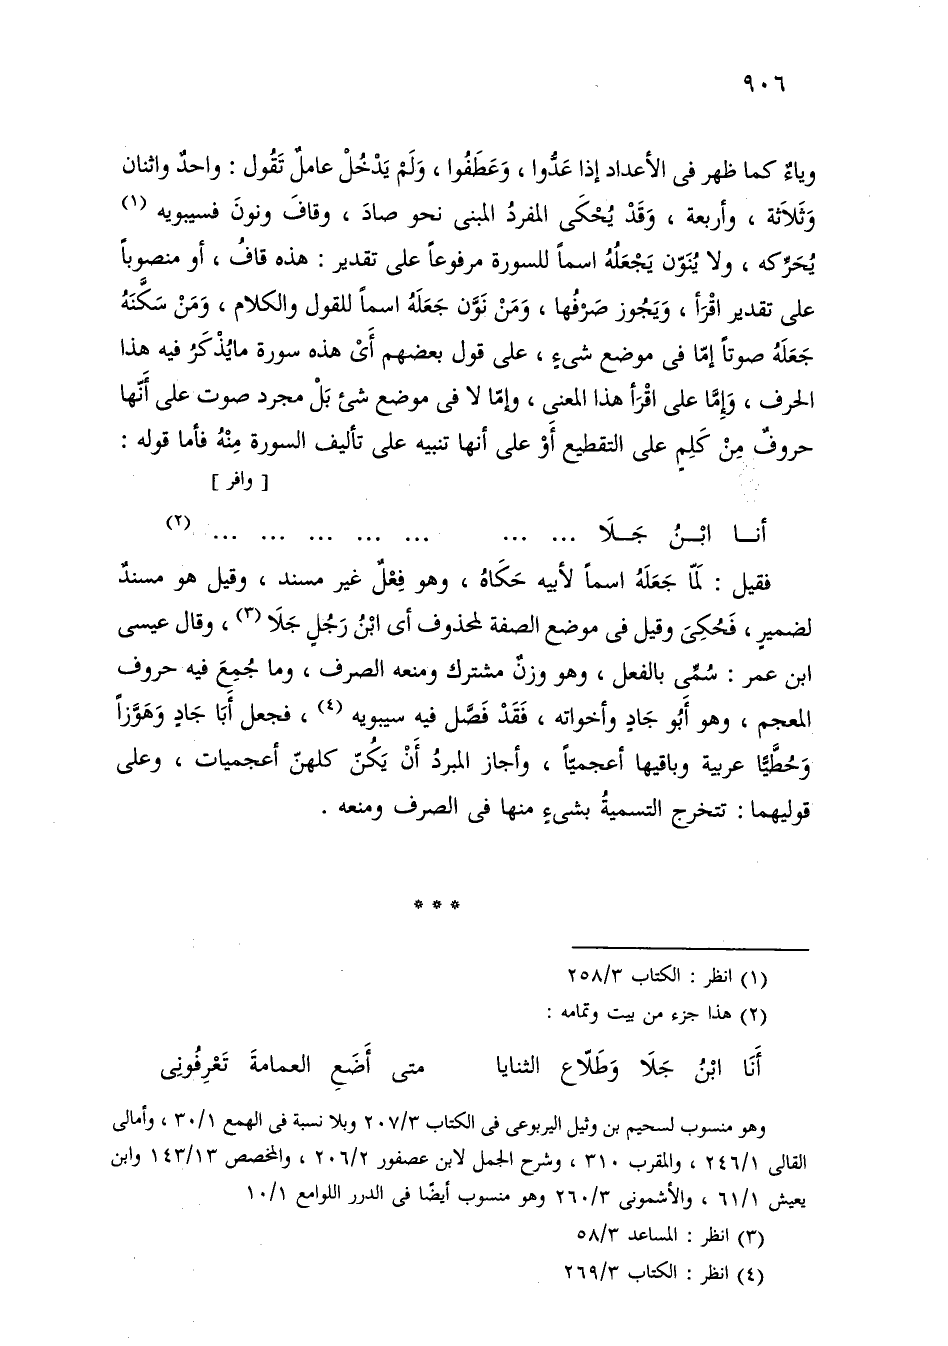 ٩٠٦
وياءٌ كما ظهر فى الأعداد إذا عَدُّوا ، وَعَطَفُوا ، وَلَمْ يَدْخُلْ عاملٌ تَقُول : واحدٌ واثنان
وَثَلَاثَة ، وأربعة ، وَقَدْ يُحْكَى المفردُ المبنى نحو صادَ ، وقافَ ونونَ فسيبويه (١)
يُحَرِّكه ، ولا يُنَوّن يَجْعَلُهُ اسماً للسورة مرفوعاً على تقدير : هذه قافُ ، أو منصوباً
على تقدير اقْرَأ ، وَيَجُوز صَرْفُها ، وَمَنْ نَوَّن جَعَلَهُ اسماً للقول والكلام ، وَمَنْ سَكَّنَهُ
جَعَلَهُ صوتاً إمّا فى موضع شىءٍ ، على قول بعضهم أَىْ هذه سورة مايُذْكَرُ فيه هذا
الحرف ، وَإِمَّا على اقْرَأ هذا المعنى ، وإمّا لا فى موضع شئ بَلْ مجرد صوت على أَنّها
حروفٌ مِنْ كَلِمٍ على التقطيع أَوْ على أنها تنبيه على تأليف السورة مِنْهُ فأما قوله :
[ وافر ]
أنــا ابْــنُ جَــلَا ... ... ... ... ... ... ... ... (٢)
فقيل : لَمّا جَعَلَهُ اسماً لأبيه حَكَاهُ ، وهو فِعْلٌ غير مسند ، وقيل هو مسندٌ
لضميرٍ ، فَحُكِىَ وقيل فى موضع الصفة لمحذوف أى ابْنُ رَجُلٍ جَلَا (٣) ، وقال عيسى
ابن عمر : سُمِّى بالفعل ، وهو وزنٌ مشترك ومنعه الصرف ، وما جُمِعَ فيه حروف
المعجم ، وهو أَبُو جَادٍ وأخواته ، فَقَدْ فَصَّل فيه سيبويه (٤) ، فجعل أَبَا جَادٍ وَهَوَّزاً
وَحُطَّيًّا عربية وباقيها أعجميّاً ، وأجاز المبردُ أَنْ يَكُنّ كلهنّ أعجميات ، وعلى
قوليهما : تتخرج التسميةُ بشىءٍ منها فى الصرف ومنعه .
* * *
(١) انظر : الكتاب ٢٥٨/٣
(٢) هذا جزء من بيت وتمامه :
أَنَا ابْنُ جَلَا وَطَلّاع الثنايا متى أَضَعِ العمامةَ تَعْرِفُونِى
وهو منسوب لسحيم بن وثيل اليربوعى فى الكتاب ٢٠٧/٣ وبلا نسبة فى الهمع ٣٠/١ ، وأمالى
القالى ٢٤٦/١ ، والمقرب ٣١٠ ، وشرح الجمل لابن عصفور ٢٠٦/٢ ، والمخصص ١٤٣/١٣ وابن
يعيش ٦١/١ ، والأشمونى ٢٦٠/٣ وهو منسوب أيضًا فى الدرر اللوامع ١٠/١
(٣) انظر : المساعد ٥٨/٣
(٤) انظر : الكتاب ٢٦٩/٣